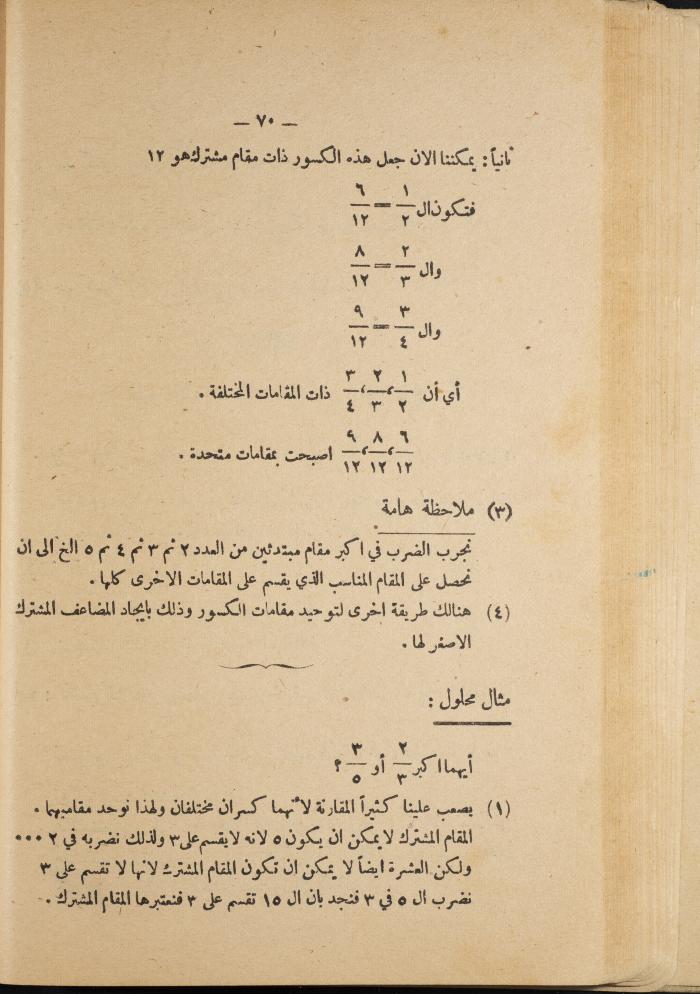 — ٧٠ —
ثانياً : يمكننا الان جعل هذه الكسور ذات مقام مشترك هو ١٢
فتكون ال ١/٢ = ٦/١٢
وال ٢/٣ = ٨/١٢
وال ٣/٤ = ٩/١٢
أي أن ١/٢ ، ٢/٣ ، ٣/٤ ذات المقامات المختلفة .
٦/١٢ ، ٨/١٢ ، ٩/١٢ اصبحت بمقامات متحدة .
(٣) ملاحظة هامة
نجرب الضرب في اكبر مقام مبتدئين من العدد ٢ ثم ٣ ثم ٤ ثم ٥ الخ الى ان
نحصل على المقام المناسب الذي يقسم على المقامات الاخرى كلها .
(٤) هنالك طريقة اخرى لتوحيد مقامات الكسور وذلك بايجاد المضاعف المشترك
الاصغر لها .
مثال محلول :
أيهما اكبر ٢/٣ أو ٣/٥ ؟
(١) يصعب علينا كثيراً المقارنة لأنهما كسران مختلفان ولهذا نوحد مقاميهما .
المقام المشترك لا يمكن ان يكون ٥ لانه لا يقسم على ٣ ولذلك نضربه في ٢ ...
ولكن العشرة ايضاً لا يمكن ان تكون المقام المشترك لانها لا تقسم على ٣
نضرب ال ٥ في ٣ فنجد بان ال ١٥ تقسم على ٣ فنعتبرها المقام المشترك .